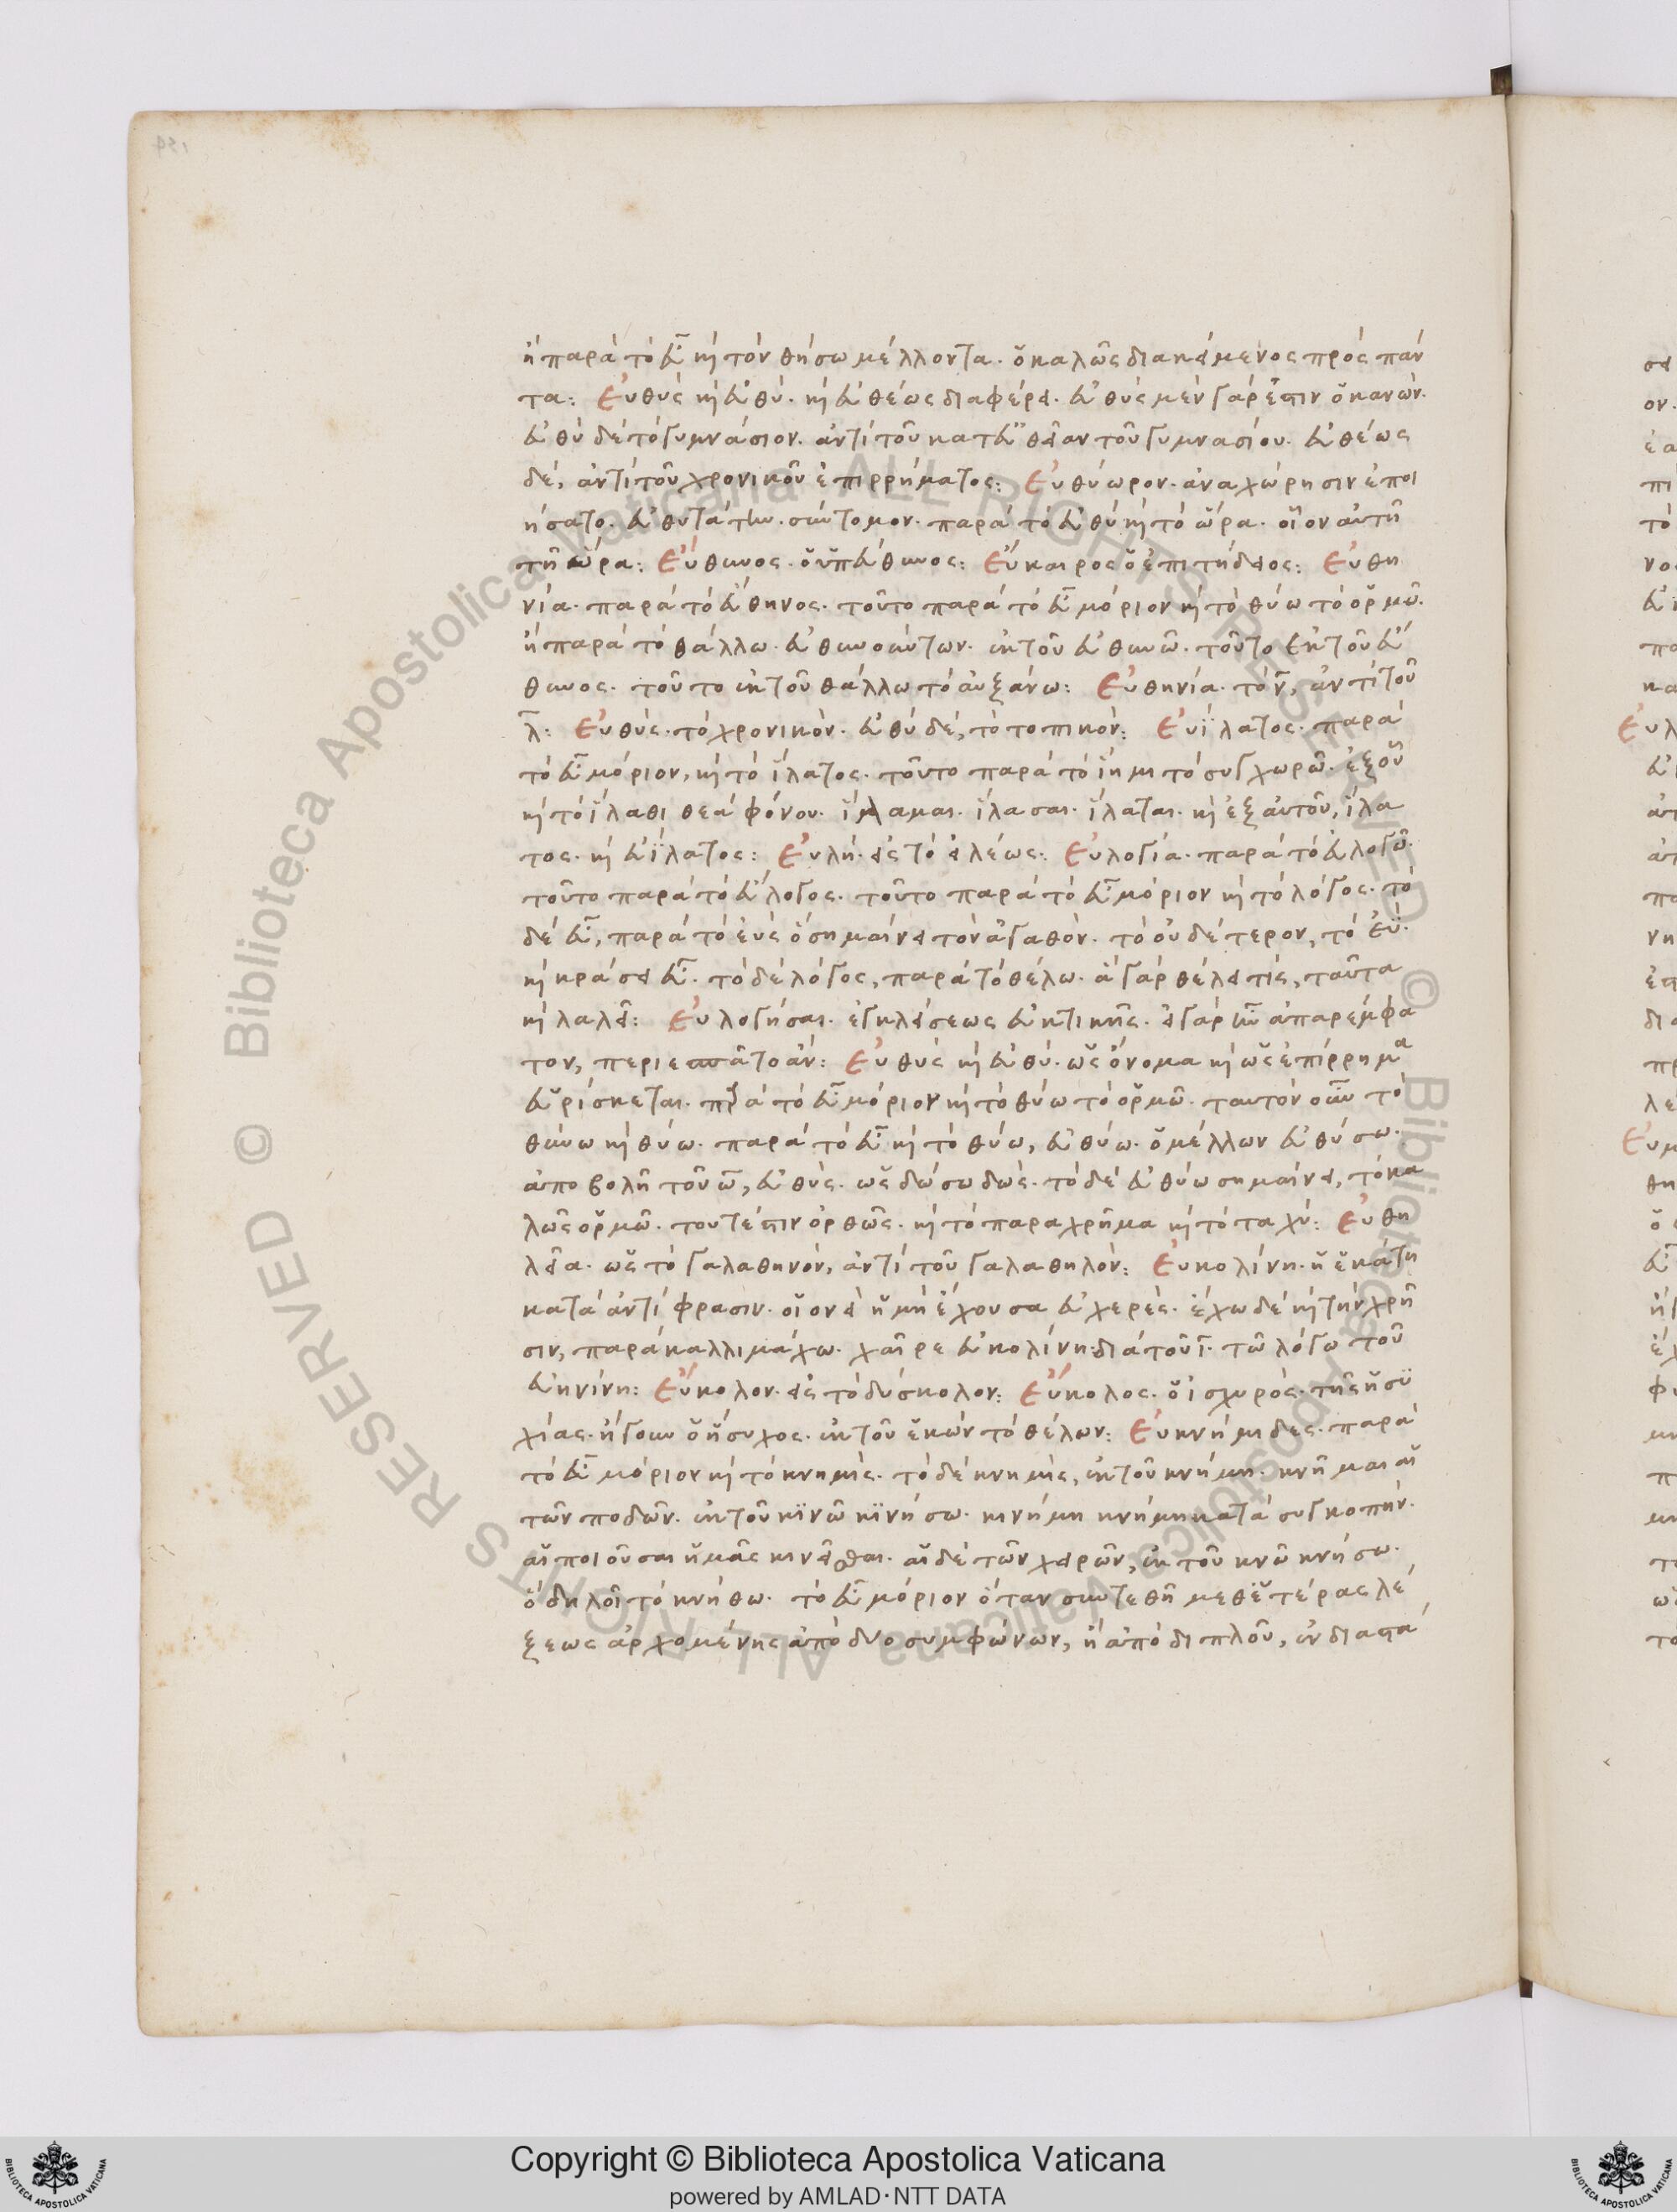 ἢ παρὰ τὸ εὖ καὶ τὸν θήσω μέλλοντα. ὁ καλῶς διακείμενος πρὸς πάν
τα: Εὐθὺς καὶ εὐθύ. καὶ εὐθέως διαφέρει. εὐθὺς μὲν γάρ ἐστιν ὁ κανών.
εὐθὺ δὲ τὸ γυμνάσιον. ἀντὶ τοῦ κατευθεῖαν τοῦ γυμνασίου. εὐθέως
δέ, ἀντὶ τοῦ χρονικοῦ ἐπιρρήματος: Εὐθύωρον. ἀναχώρησιν ἐποι
ήσατο. εὐθυτάτην. σύντομον. παρὰ τὸ εὐθὺ καὶ τὸ ὥρα. οἷον αὐτῇ
τῇ ὥρα: Εὔθυνος. ὁ ὑπεύθυνος: Εὔκαιρος ὁ ἐπιτήδειος: Εὐθη
νία. παρὰ τὸ εὔθηνος. τοῦτο παρὰ τὸ εὖ μόριον καὶ τὸ θύω τὸ ὁρμῶ.
ἢ παρὰ τὸ θάλλω. εὐθυνούντων. ἐκ τοῦ εὐθυνῶ. τοῦτο ἐκ τοῦ εὔ
θυνος. τοῦτο ἐκ τοῦ θάλλω τὸ αὐξάνω: Εὐθηνία. τὸ ν, ἀντὶ τοῦ
λ: Εὐθύς. τὸ χρονικόν. εὐθὺ δέ, τὸ τοπικόν: Εὐΐλατος. παρὰ
τὸ εὖ μόριον, καὶ τὸ ἵλατος. τοῦτο παρὰ τὸ ἵημι τὸ συγχωρῶ. ἐξ οὗ
καὶ τὸ ἵλαθι θεὰ φόνου. ἵλαμαι. ἵλασαι. ἵλαται. καὶ ἐξ αὐτοῦ, ἵλα
τος. καὶ εὐΐλατος: Εὐλή. εἰς τὸ εἰλέως: Εὐλογία. παρὰ τὸ εὐλογῶ.
τοῦτο παρὰ τὸ εὔλογος. τοῦτο παρὰ τὸ εὖ μόριον καὶ τὸ λόγος. τὸ
δὲ εὖ, παρὰ τὸ ἐὺς ὃ σημαίνει τὸν ἀγαθόν. τὸ οὐδέτερον, τὸ ἐΰ.
καὶ κράσει εὖ. τὸ δὲ λόγος, παρὰ τὸ θέλω. ἃ γὰρ θέλει τίς, ταῦτα
καὶ λαλεῖ: Εὐλογήσαι. ἐγκλίσεως εὐκτικῆς. εἰ γὰρ ἦν ἀπαρέμφα
τον, περιεσπᾶτο ἄν: Εὐθὺς καὶ εὐθύ. ὡς ὄνομα καὶ ὡς ἐπίρρημα
εὑρίσκεται. παρὰ τὸ εὖ μόριον καὶ τὸ θύω τὸ ὁρμῶ. ταυτὸν οὖν τὸ
θύνω καὶ θύω. παρὰ τὸ εὖ καὶ τὸ θύω, εὐθύω. ὁ μέλλων εὐθύσω.
ἀποβολῇ τοῦ ω, εὐθύς. ὡς δώσω δώς. τὸ δὲ εὐθύω σημαίνει, τὸ κα
λῶς ὁρμῶ. τουτέστιν ὀρθῶς. καὶ τὸ παραχρῆμα καὶ τὸ ταχύ: Εὐθη
λεῖα. ὡς τὸ γαλαθηνόν, ἀντὶ τοῦ γαλαθηλόν: Εὐκολίνη. ἡ ἑκάτη
κατὰ ἀντίφρασιν. οἱονεὶ ἡ μὴ ἔχουσα εὐχερές. ἔχω δὲ καὶ τὴν χρῆ
σιν, παρὰ καλλιμάχω. χαῖρε εὐκολίνη. διὰ τοῦ ι. τῶ λόγω τοῦ
εὐηνίνη: Εὔκολον. εἰς τὸ δύσκολον: Εὔκολος. ὁ ἰσχυρός. τῆς ἡσυ
χίας. ἤγουν ὁ ἥσυχος. ἐκ τοῦ ἑκὼν τὸ θέλων: Εὐκνήμιδες. παρὰ
τὸ εὖ μόριον καὶ τὸ κνημίς. τὸ δὲ κνημίς, ἐκ τοῦ κνήμη. κνῆμαι αἱ
τῶν ποδῶν. ἐκ τοῦ κϊνῶ κϊνήσω. κινήμη κνήμη κατὰ συγκοπήν.
αἱ ποιοῦσαι ἡμᾶς κινεῖσθαι. αἱ δὲ τῶν χειρῶν, ἐκ τοῦ κνῶ κνήσω.
ὃ δηλοῖ τὸ κνήθω. τὸ εὖ μόριον ὅταν συντεθῇ μεθ' ἑτέρας λέ
ξεως ἀρχομένης ἀπὸ δύο συμφώνων, ἢ ἀπὸ διπλοῦ, ἐν διαστά
Copyright © Biblioteca Apostolica Vaticana
powered by AMLAD·NTT DATA